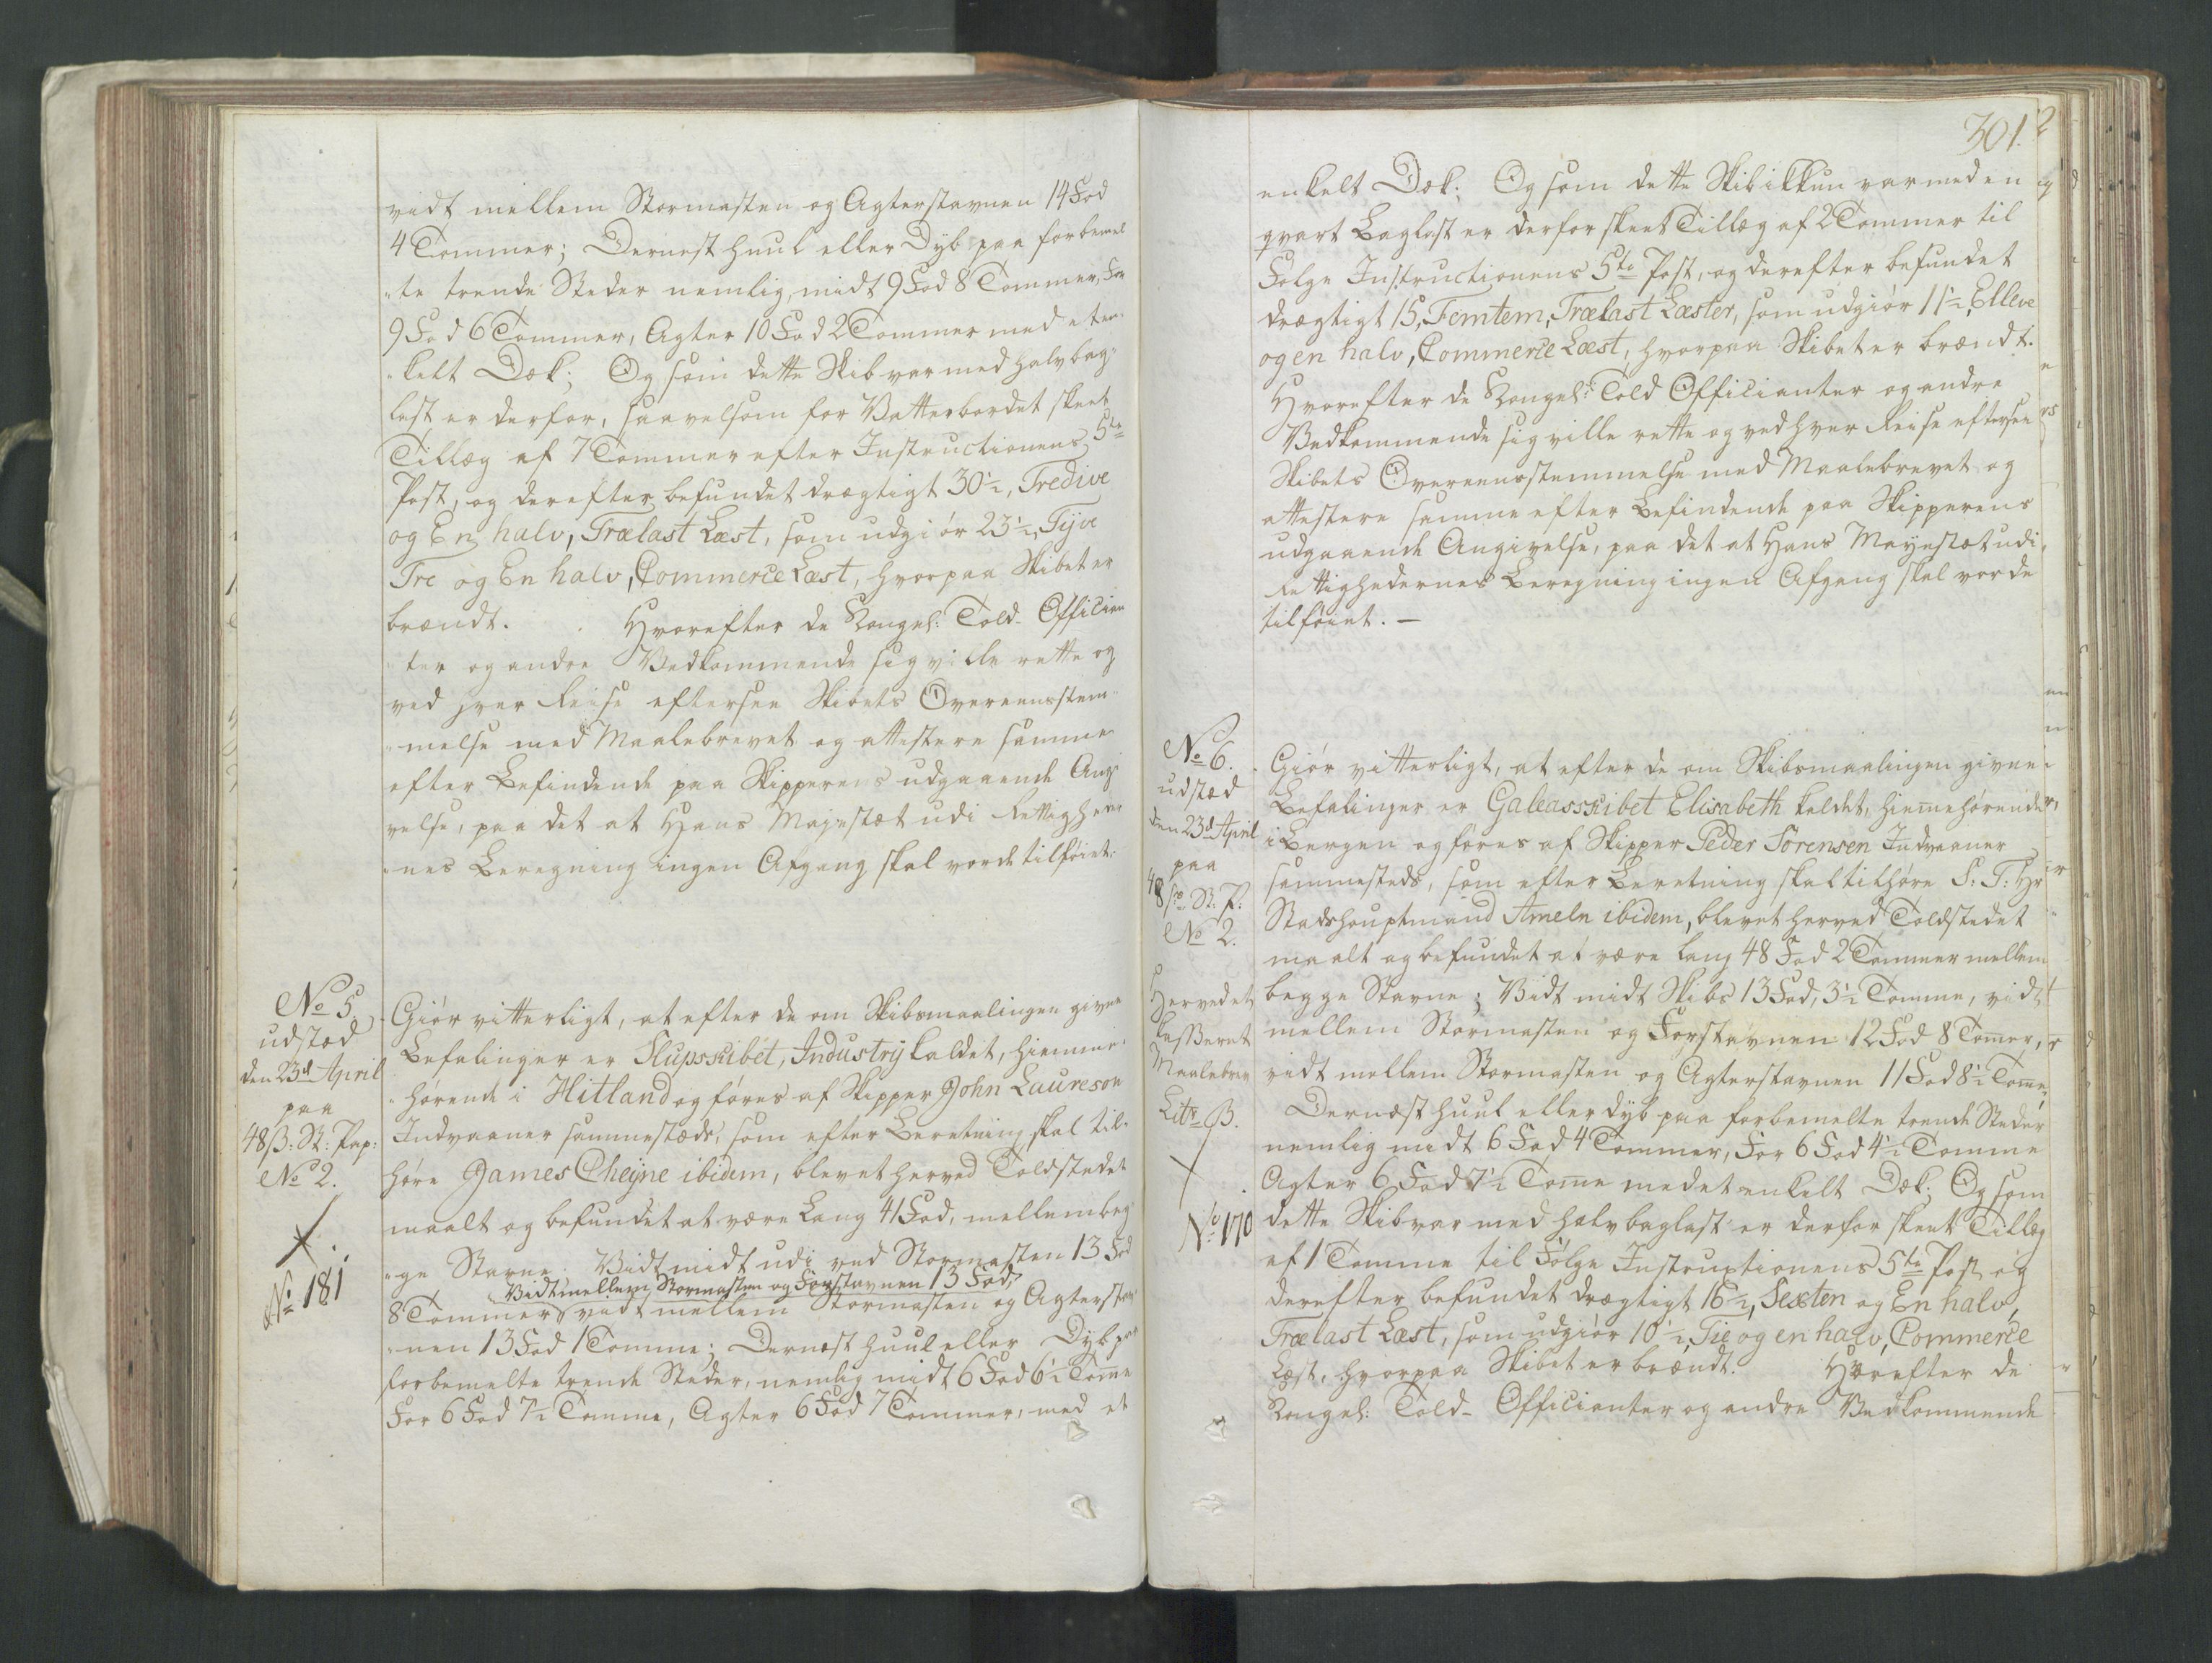 vidt mellem Stormasten og Agterstavnen 14 Fod
4 Tommer; Dernest huul eller Dyb paa forbemel
"te trende Steder nemlig, midt 9 Fod 8 Tommer, For
9 Fod 6 Tommer, Agter 10 Fod 2 Tommer med et en-
"kelt Dæk; Og som dette Skib var med halv bag-
last er derfor, saavelsom for Vatterbordet skeet
Tillæg af 7 Tommer efter Instructionens 5te
Post, og derefter befundet drægtigt 30½, Tredive
og En halv, Trælast Læst, som udgiør 23½, Tyve
Tre og En halv, Commerce Læst, hvorpaa Skibet er
brændt. Hvorefter de Kongel: Told-Offician
"ter og andre Vedkommende sig ville rette og
ved hver Reise eftersee Skibets Overeensstem-
"melse med Maalebrevet og attestere samme
efter Befindende paa Skipperens udgaaende Angi-
velse, paa det at Hans Majestæt udi Rettigheder
"nes Beregning ingen Afgang skal vorde tilføiet.
No 5.
udstæd
den 23d April
paa
48 ß: St: Pap:
No 2.
No 181
Giør vitterligt, at efter de om Skibsmaalingen givne
Befalinger er Slupskibet, Industrij kaldet, hiemme-
"hørende i Hitland og føres af Skipper John Laureson
Indvaaner sammestæds, som efter Beretning skal til-
høre James Cheyne ibidem, blevet herved Toldstedet
maalt og befundet at være Lang 41 Fod, mellem beg-
"ge Stavne. Vidt midt udi ved Stormasten 13 Fod
Vidt mellem Stormasten og Forstavnen 13 Fod,
8 Tommer vidt mellem Stormasten og Agterstav-
"nen 13 Fod 1 Tomme; Dernæst huul eller Dyb paa
forbemelte trende Steder, nemlig midt 6 Fod 6½ Tomme
For 6 Fod 7½ Tomme, Agter 6 Fod 7 Tommer, med et
301.
enkelt Dæk; Og som dette Skib ikkun var med en
qvart Baglast er derfor skeet Tillæg af 2 Tommer til
Følge Instructionens 5te Post, og derefter befundet
drægtigt 15, Femtem, Trælast Læster, som udgiør 11½, Elleve
og en halv, Commerce Læst, hvorpaa Skibet er brændt.
Hvorefter de Kongel: Told Officianter og andre
Vedkommende sig ville rette og ved hver Reise eftersee
Skibets Overeensstemmelse med Maalebrevet og
attestere samme efter Befindende paa Skipperens
udgaaende Angivelse, paa det at Hans Mayestæt udi
Rettighedernes Beregning ingen Afgang skal vorde
tilføiet. —
No 6.
udstæd
den 23d April
paa
48 ß St: P:
No 2.
Hervedet
kasseret
Maalebrev
Litr B.
No 170
Giør vitterligt, at efter de om Skibsmaalingen givne
Befalinger er Galeasskibet Elisabeth kaldet, hiemehørende
i Bergen og føres af Skipper Peder Sørensen Indvaaner
sammesteds, som efter Beretning skal tilhøre S: T: Hr
Stadshouptmand Ameln ibidem, blevet herved Toldstedet
maalt og befundet at være lang 48 Fod 2 Tommer mellem
begge Stavne; Vidt midt Skibs 13 Fod, 3½ Tomme, vidt
mellem Stormasten og Forstavnen 12 Fod 8 Tomer,
vidt mellem Stormasten og Agterstavnen 11 Fod 8½ Tome,
Dernæst huul eller dyb paa forbemelte trende Steder
nemlig midt 6 Fod 4 Tommer, For 6 Fod 4½ Tomme
Agter 6 Fod 7½ Tome med et enkelt Dæk; Og som
dette Skib var med halv baglast er derfor skeet Tillæg
af 1 Tomme til Følge Instruptionens 5te Post og
derefter befundet drægtigt 16½, Sexten og En halv,
Trælast Læst, som udgiør 10½, Tie og en halv, Commerce
Læst, hvorpaa Skibet er brændt. Hvorefter de
Kongel: Told-Officianter og andre Vedkommende